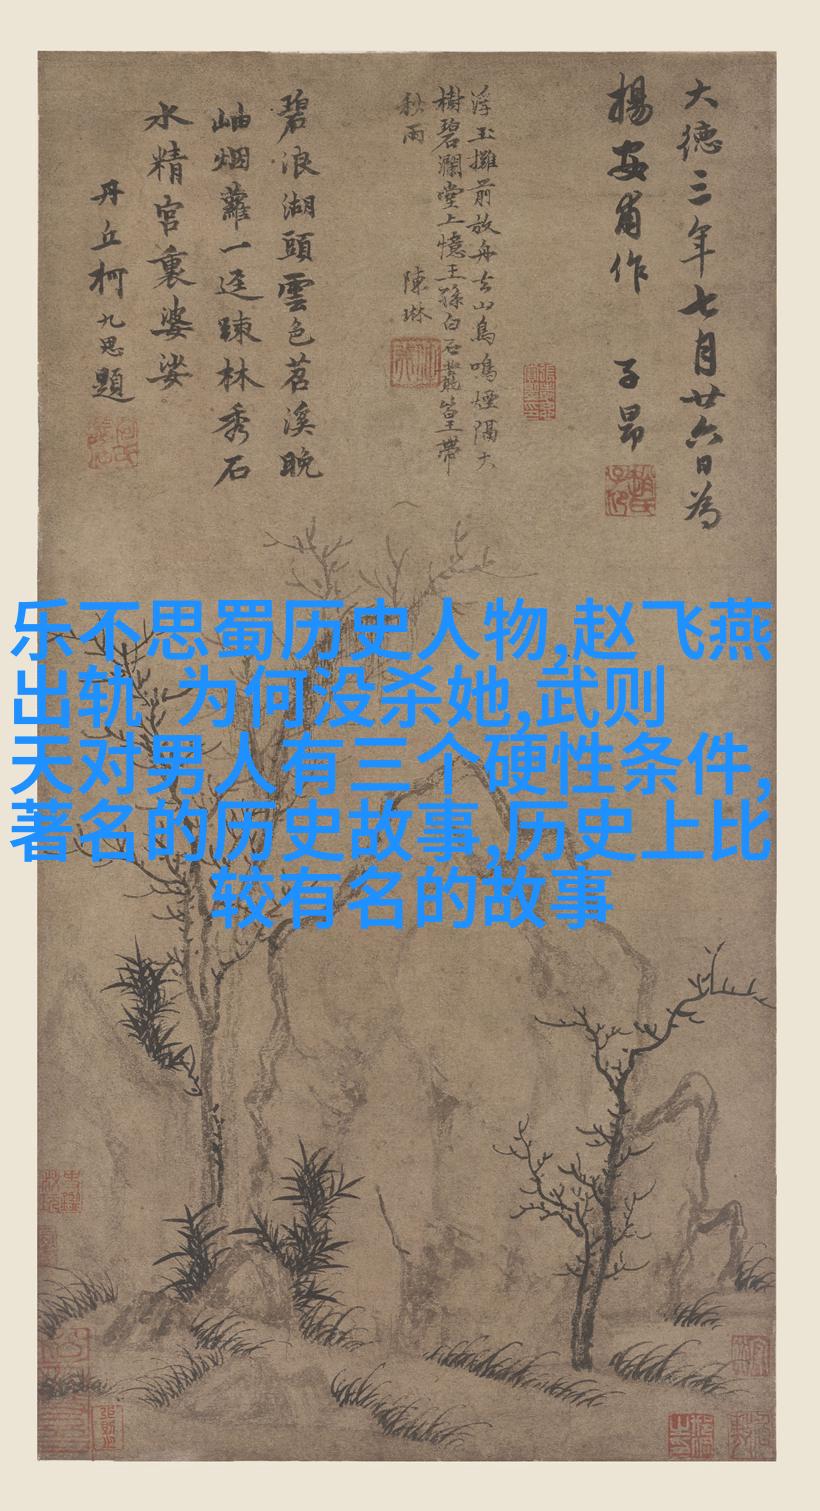 大德三年七月廿六日為
楊安甫作 子昂
浮玉攤前放舟去山鳥鳴煙隔大
樹碧瀾堂上憶王孫白石叢篁帶
秋雨 陳琳
碧浪湖頭雲色苕溪晚
岫烟蘿一逕踈林秀石
水精宮裏婆娑
丹丘柯九思題
乐不思蜀历史人物,赵飞燕
出轨 为何没杀她,武则
天对男人有三个硬性条件,
著名的历史故事,历史上比
较有名的故事